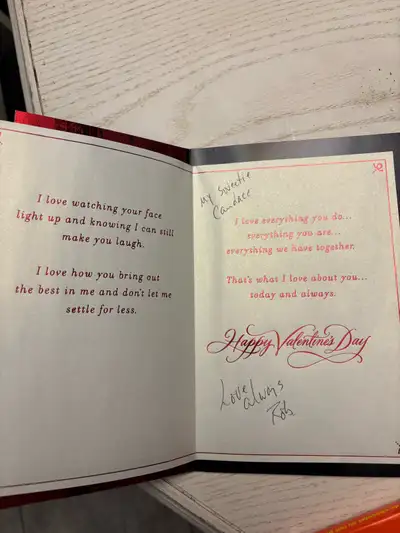 I love watching your face
light up and knowing I can still
make you laugh.
I love how you bring out
the best in me and don't let me
settle for less.
My Sweetie
Candace
I love everything you do...
everything you are...
everything we have together.
That's what I love about you...
today and always.
Happy Valentine's Day
Love
always
Rob